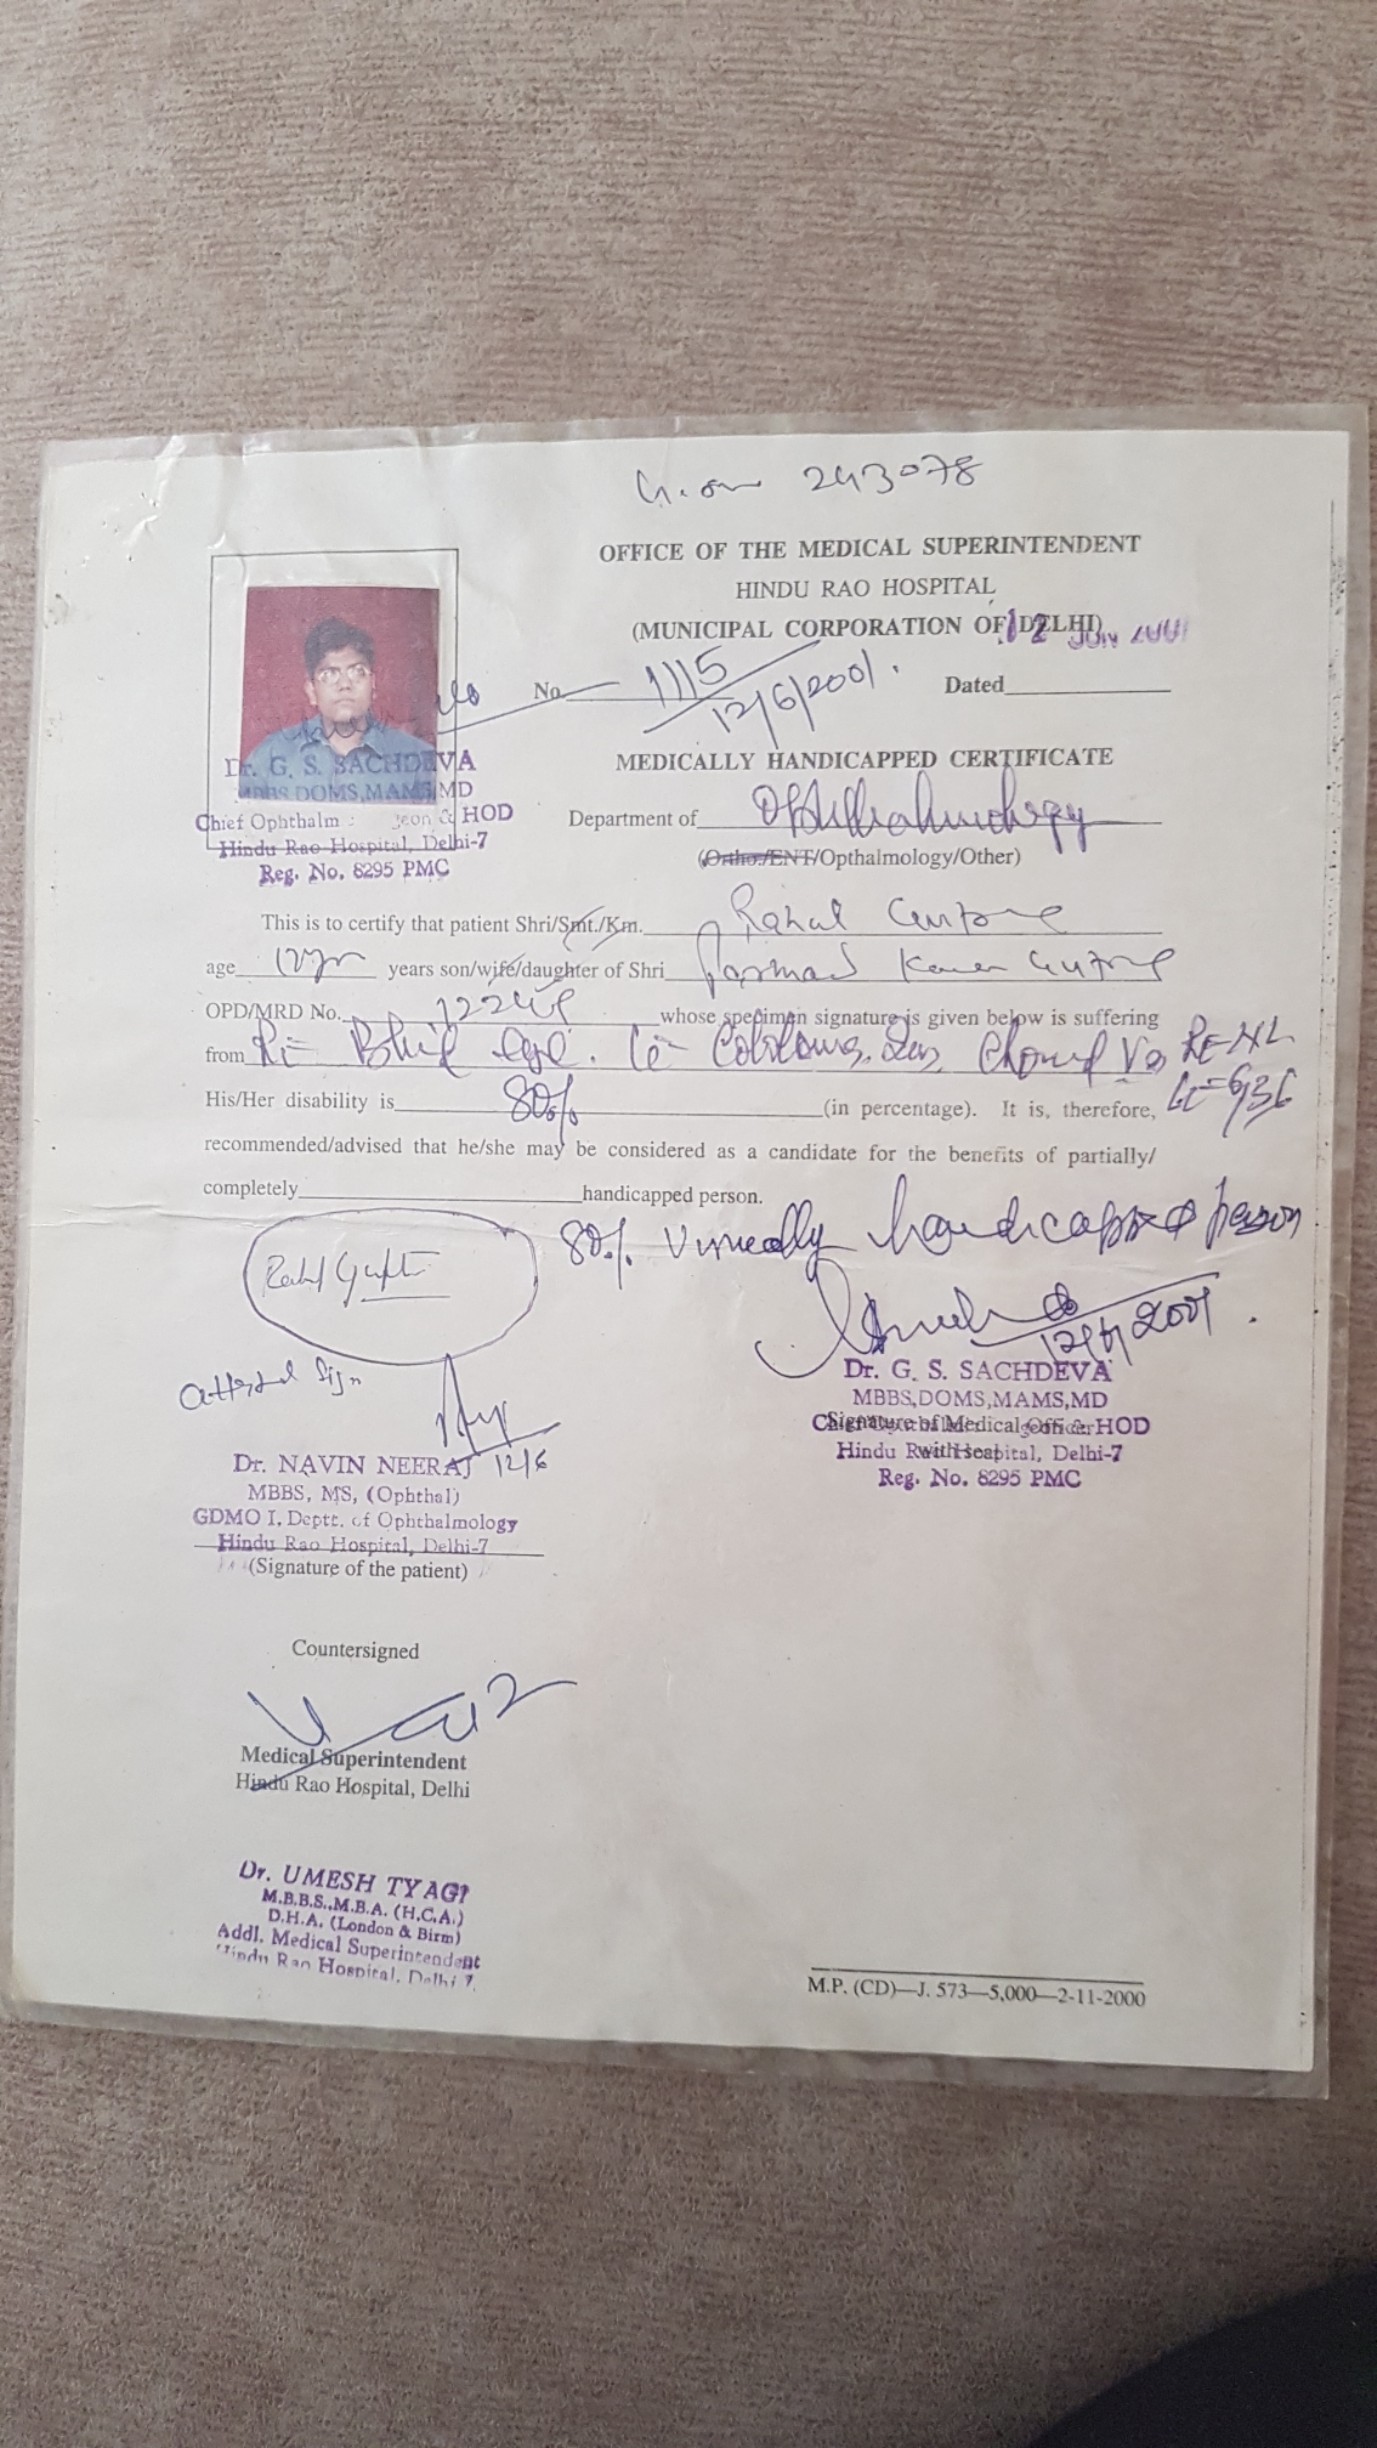 243078
OFFICE OF THE MEDICAL SUPERINTENDENT
HINDU RAO HOSPITAL
(MUNICIPAL CORPORATION OF DELHI)
12 JUN
No. 1115
12/6/2001.
Dated
Dr. G. S. SACHDEVA
MBBS DOMS,MAMS,MD
Chief Ophthalm & HOD
Hindu Rao Hospital, Delhi-7
Reg. No. 8295 PMC
MEDICALLY HANDICAPPED CERTIFICATE
Department of Ophthalmology
(Ortho./ENT/Opthalmology/Other)
This is to certify that patient Shri/Smt./Km. Rahul
age years son/wife/daughter of Shri
OPD/MRD No. whose specimen signature is given below is suffering
from RE= Blind eye. RE=
His/Her disability is 80% (in percentage). It is, therefore, LE=6/36
recommended/advised that he/she may be considered as a candidate for the benefits of partially/
completely handicapped person.
80% Visually handicapped person
Rahul Gupta
12/6/2001.
Attested Sign
Dr. G. S. SACHDEVA
MBBS,DOMS,MAMS,MD
Signature of Medical Officer HOD
with seal
Hindu Hospital, Delhi-7
Reg. No. 8295 PMC
Dr. NAVIN NEERAJ 12/6
MBBS, MS, (Ophthal)
GDMO I. Deptt. of Ophthalmology
Hindu Rao Hospital, Delhi-7
(Signature of the patient)
Countersigned
Medical Superintendent
Hindu Rao Hospital, Delhi
Dr. UMESH TYAGI
M.B.B.S.,M.B.A. (H.C.A.)
D.H.A. (London & Birm)
Addl. Medical Superintendent
Hindu Rao Hospital, Delhi 7.
M.P. (CD)—J. 573—5,000—2-11-2000